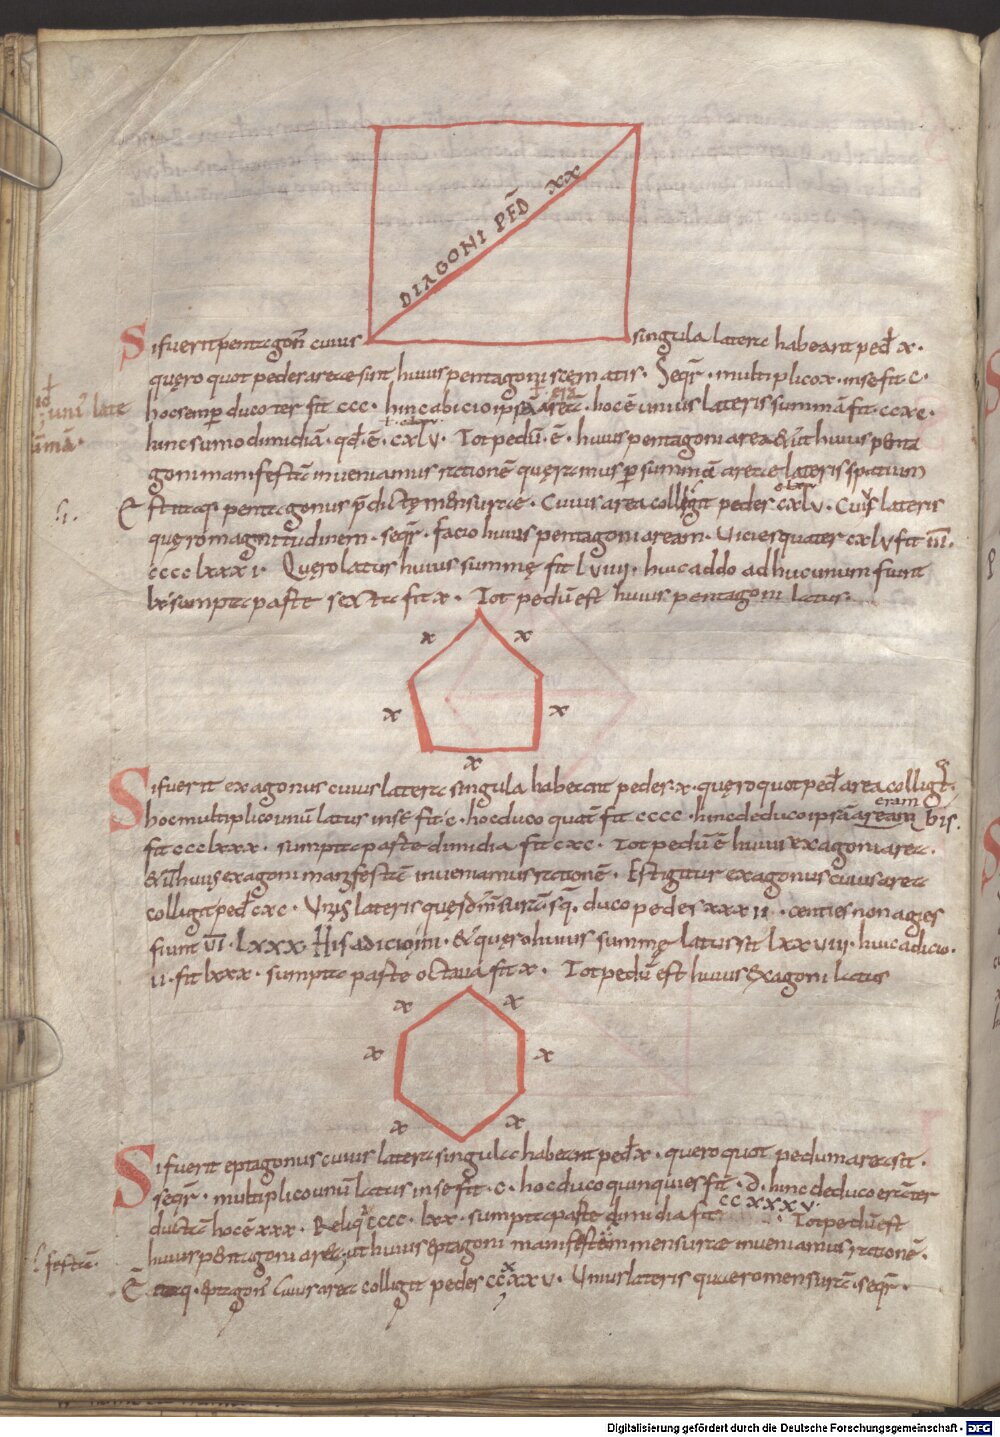 DIAGONI PED XX
Si fuerit pentagon cuius singula latera habeant ped x.
quero quot pedes areae sint huius pentagoni scematis. Seqr. multiplico x. in se fit c.
hoc semper duco ter fit ccc. hinc abicio ipsa area. hoc ē unius lateris summā fit. ccxc.
hinc sumo dimidiā. qd ē. cxlv. Tot pedū ē. huius pentagoni area & ut huius penta
goni manifestā inveniamus rationē querimus per summā areae lateris spatium
Est itaq. pentagonus pdictę mensurae. Cuius area colligit pedes cxlv. Cuius lateris
quero magnitudinem. seqr. facio huius pentagoni aream. Vicies quater cxlv fit III.
cccclxxxi. Quero latus huius summę fit lviiii. huic addo adhuc unum fiunt
lx sumpta parte sexta fit x. Tot pedū est huius pentagoni latus.
x x
x x
x
Si fuerit exagonus cuius latera singula habeant pedes x. quero quot ped area colligat.
hoc multiplico unū latus in se fit c. hoc duco quat fit cccc. hinc deduco ipsā aream bis.
fit ccclxxx. sumpta parte dimidia fit cxc. Tot pedū ē huius exagoni area.
& ut huius exagoni manifestā inveniamus rationē. Est igitur exagonus cuius area
colligit ped cxc. duco pedes xxxii. centies nonagies
fiunt VI. LXXX. His adicio & quero huius summę latus fit lxxviii. huic adicio.
ii. fit lxxx. sumpta parte octava fit x. Tot pedū est huius exagoni latus
x x
x x
x x
Si fuerit eptagonus cuius latera singula habeant ped x. quero quot pedum area sit.
seqr. multiplico unū latus in se fit. c. hoc duco quinquies fit. D. hinc deduco
hoc ē xxx. Reliq cccc. lxx. sumpta parte dimidia fit ccxxxv. Tot pedū est
huius pentagoni area. ut huius eptagoni manifestam mensurae inveniamus rationē.
Ē itaq. eptagon cuius area colligit pedes ccxxxv. Unius lateris quaero mensurā. seqr.
Digitalisierung gefördert durch die Deutsche Forschungsgemeinschaft - DFG